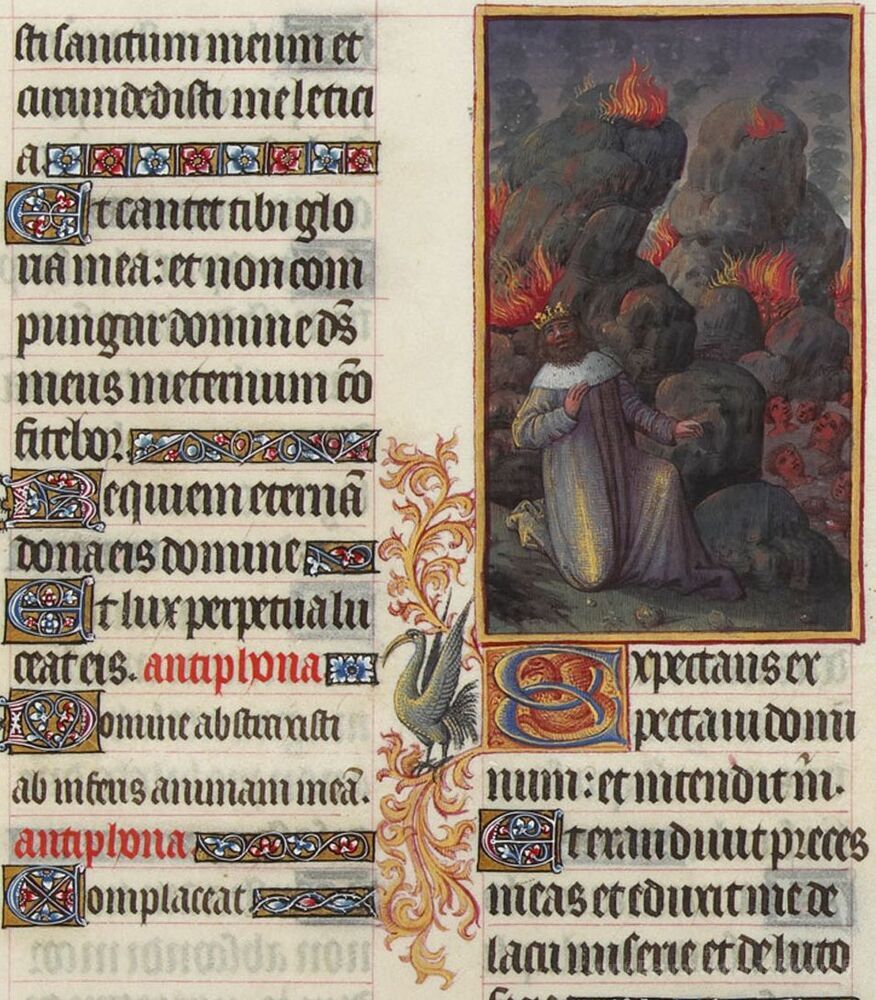 sti sanctum meum et
circundedisti me letici
a.
Et cantet tibi glo
ria mea: et non com
pungar domine ds̄
meus in eternum cō
fitebor.
Requiem eternā
dona eis domine
Et lux perpetua lu
ceat eis. antiphona
Domine abstraxisti
ab inferis animam meā.
antiphona
Complaceat.
Expectans ex
pectaui domi
num: et intendit m̄.
Et exaudiuit preces
meas et eduxit me de
lacu miserie et de luto